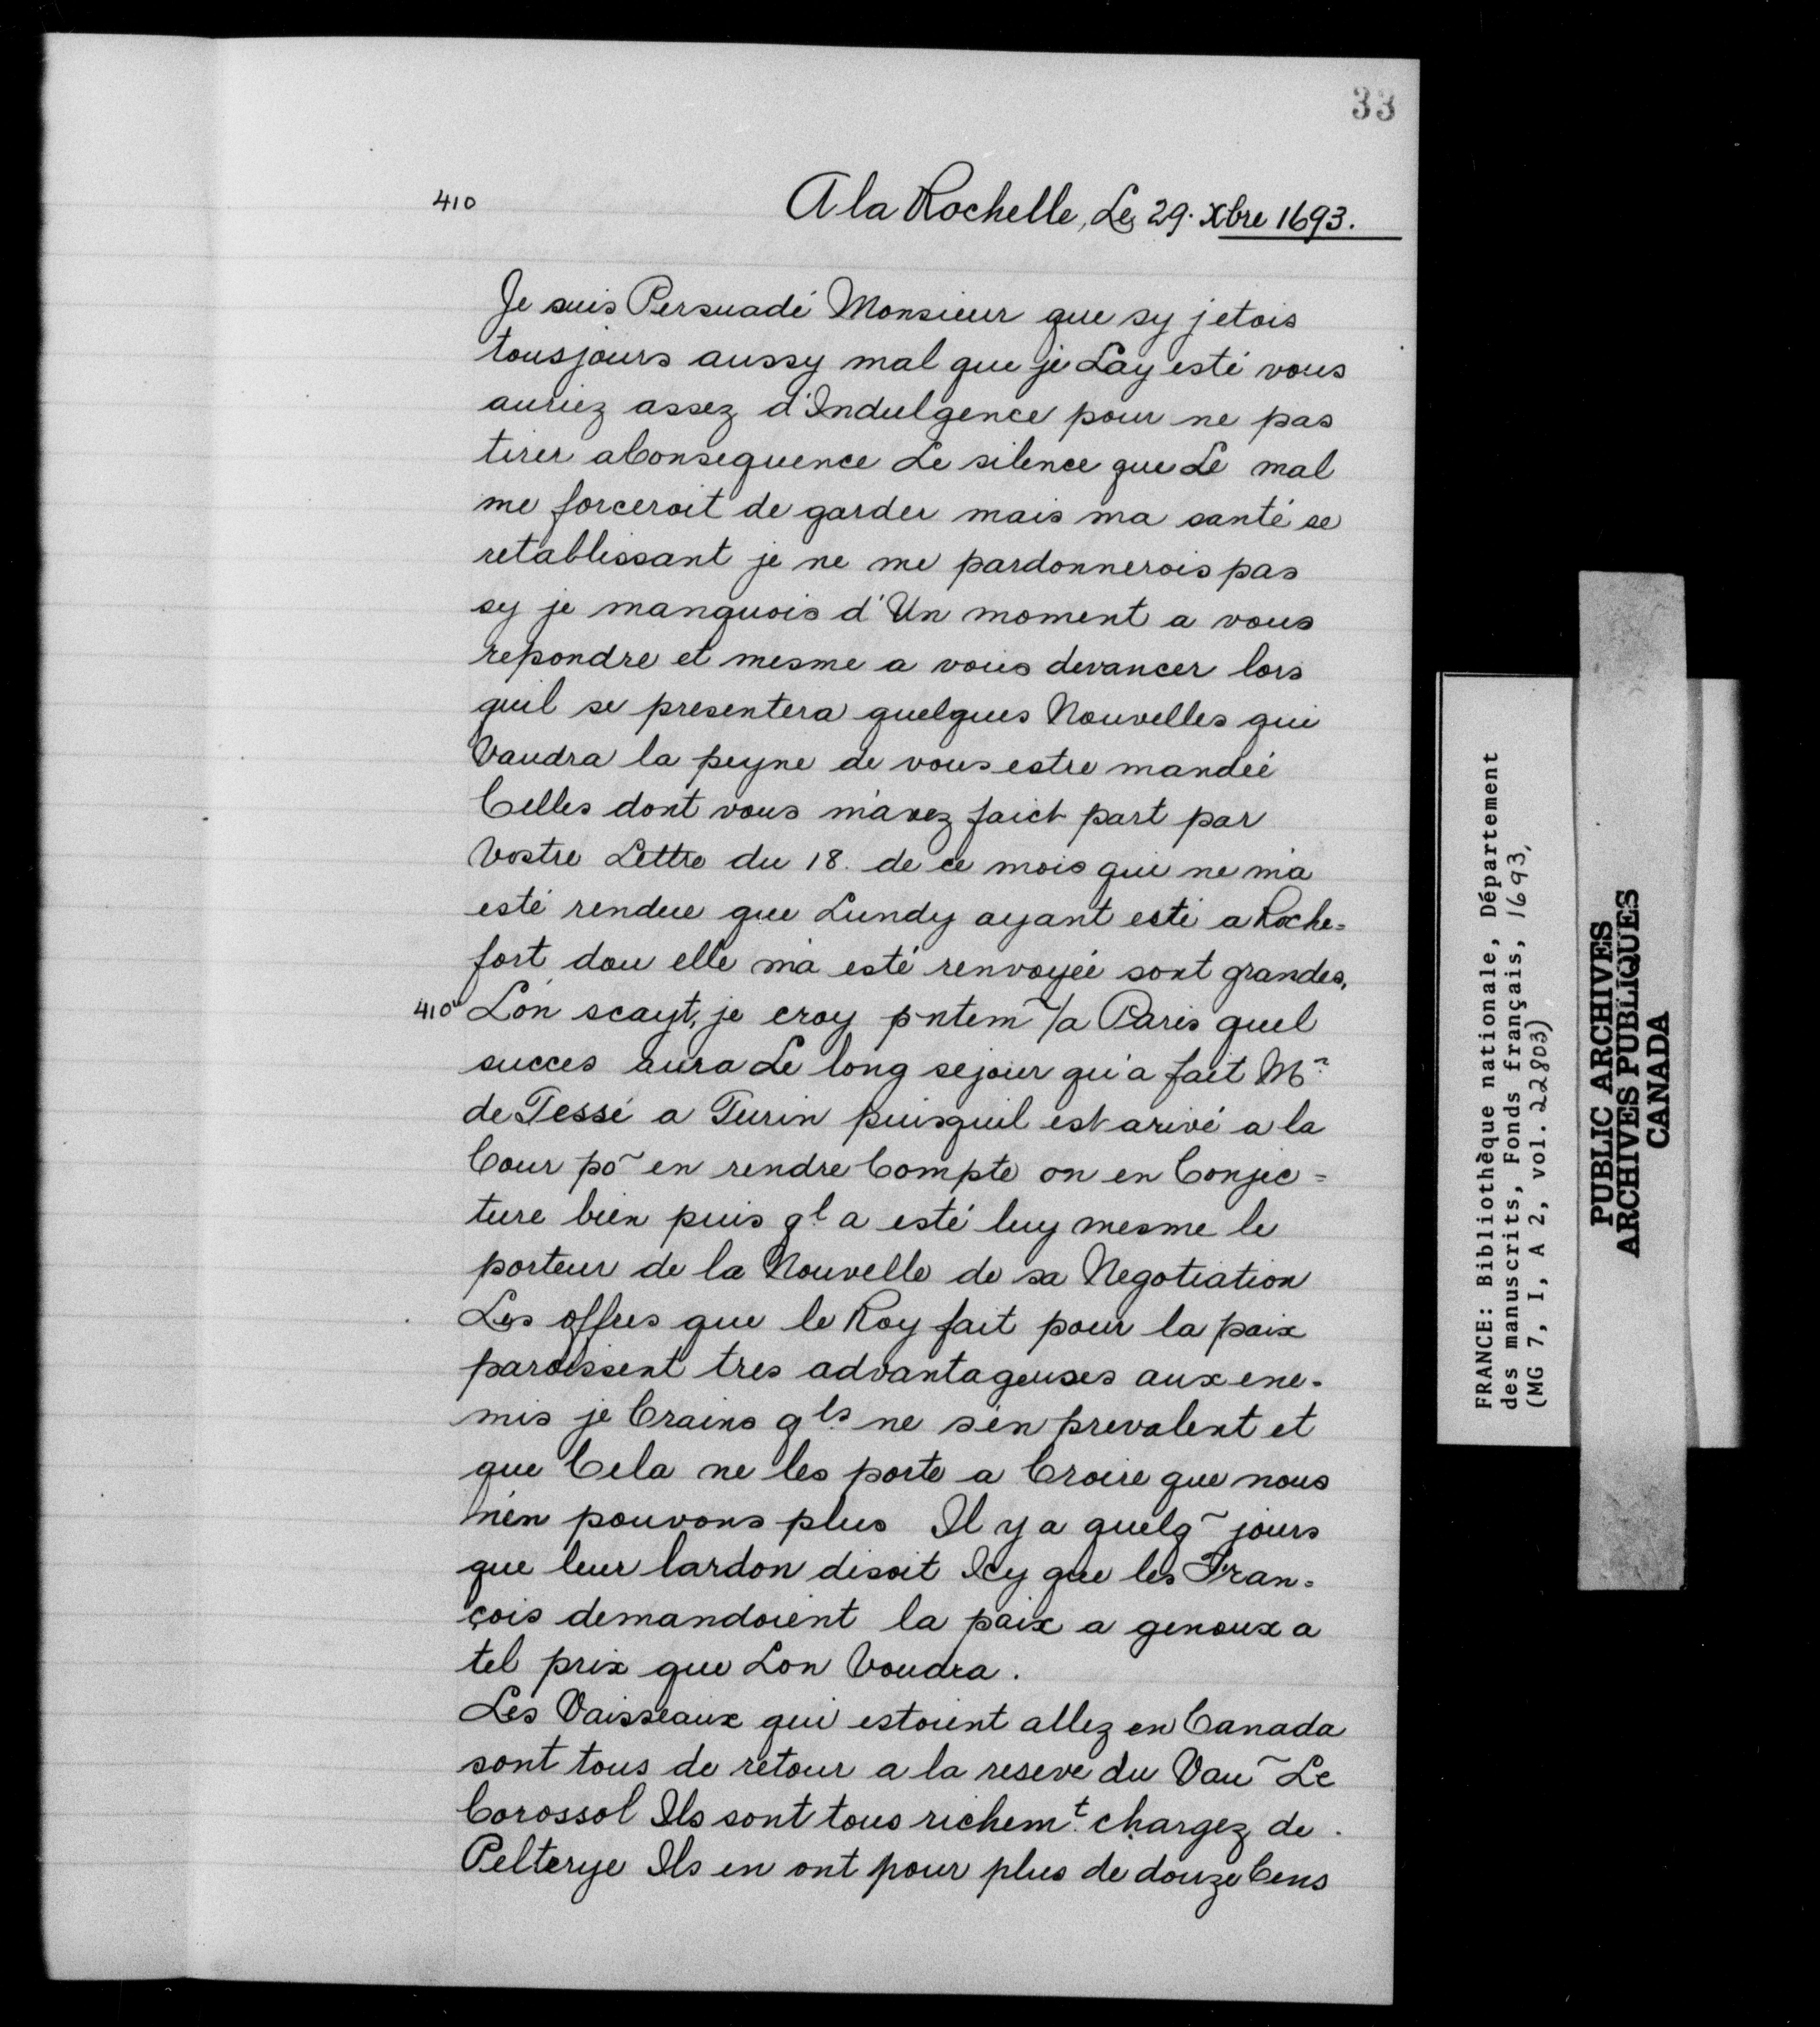 33
410
A la Rochelle, Le 29. Xbre 1693.
Je suis Persuadé Monsieur que sy jetois
tousjours aussy mal que je Lay esté vous
auriez assez d'Indulgence pour ne pas
tirer a Consequence Le silence que Le mal
me forceroit de garder mais ma santé se
retablissant je ne me pardonnerois pas
sy je manquois d'Un moment a vous
repondre et mesme a vous devancer lors
quil se presentera quelques Nouvelles qui
Vaudra la peyne de vous estre mandée
Celles dont vous m'avez faict part par
Vostre Lettre du 18. de ce mois qui ne m'a
esté rendue que Lundy ayant esté a Roche=
fort dou elle m'a esté renvoyée sont grandes,
410v L'on scayt, je croy pntem~/a Paris quel
succes aura Le long sejour qu'a fait Mr.
de Tessé a Turin puisquil est arivé a la
Cour po~ en rendre Compte on en Conjec=
ture bien puis ql a esté luy mesme le
porteur de la Nouvelle de sa Negotiation
Les offres que le Roy fait pour la paix
paroissent tres advantageuses aux ene=
mis je Crains qls ne s'en prevalent et
que Cela ne les porte a Croire que nous
n'en pouvons plus Il y a quelq~ jours
que leur lardon disoit Icy que les Fran=
çois demandoient la paix a genoux a
tel prix que Lon Voudra.
Les Vaisseaux qui estoient allez en Canada
sont tous de retour a la reserve du Vau~ Le
Corossol Ils sont tous richemt. chargez de
Pelterye Ils en ont pour plus de douze Cens
FRANCE: Bibliothèque nationale, Département
des manuscrits, Fonds français, 1693,
(MG 7, I, A 2, vol. 22803)
PUBLIC ARCHIVES
ARCHIVES PUBLIQUES
CANADA